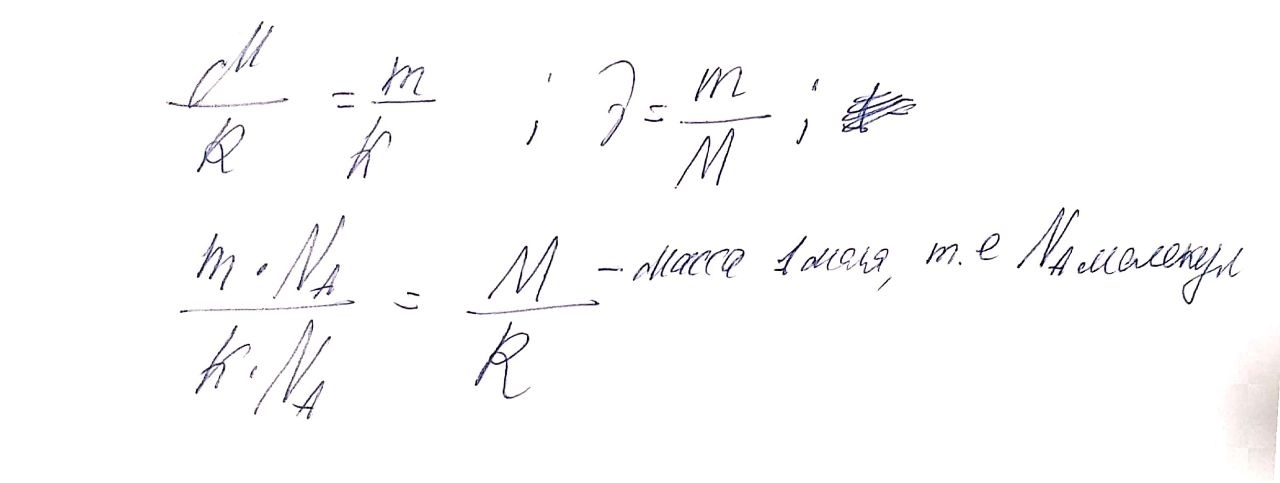 M/R = m/k ; ν = m/M ;
m·N_A / k·N_A = M/R – масса 1 моля, т.е N_A молекул